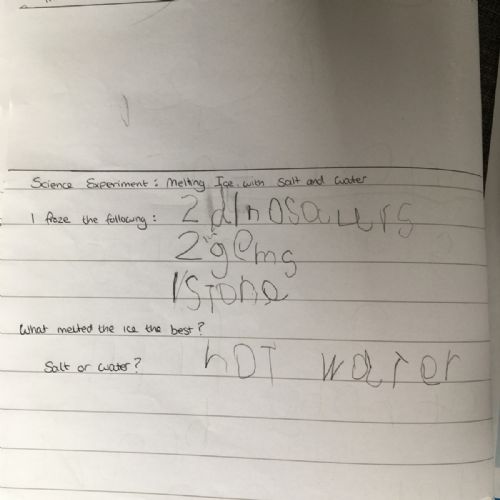 Science Experiment: Melting Ice with Salt and Water
I froze the following: 2 dinosaurs
2 gems
1 stone
What melted the ice the best?
Salt or water? hot water